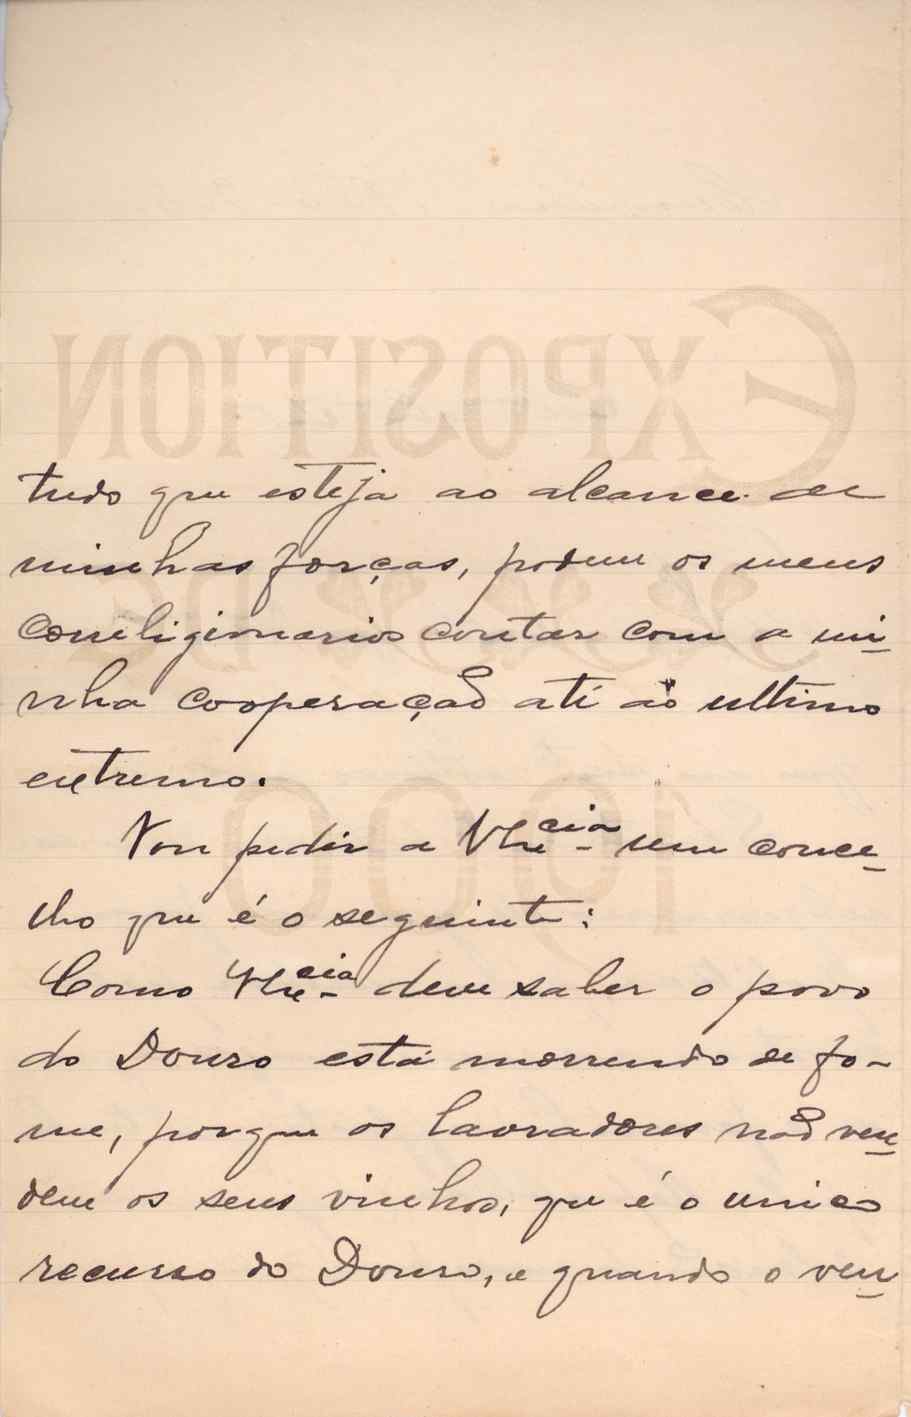 EXPOSITION
DE
1900
tudo que esteja ao alcance de
minhas forças, podem os meus
correligionarios contar com a mi-
nha cooperação até ao ultimo
extremo.
Vou pedir a VExcia- um conce-
lho que é o seguinte:
Como VExcia- deve saber o povo
do Douro está morrendo de fo-
me, porque os lavradores não ven-
dem os seus vinhos, que é o unico
recurso do Douro, e quando o ven-